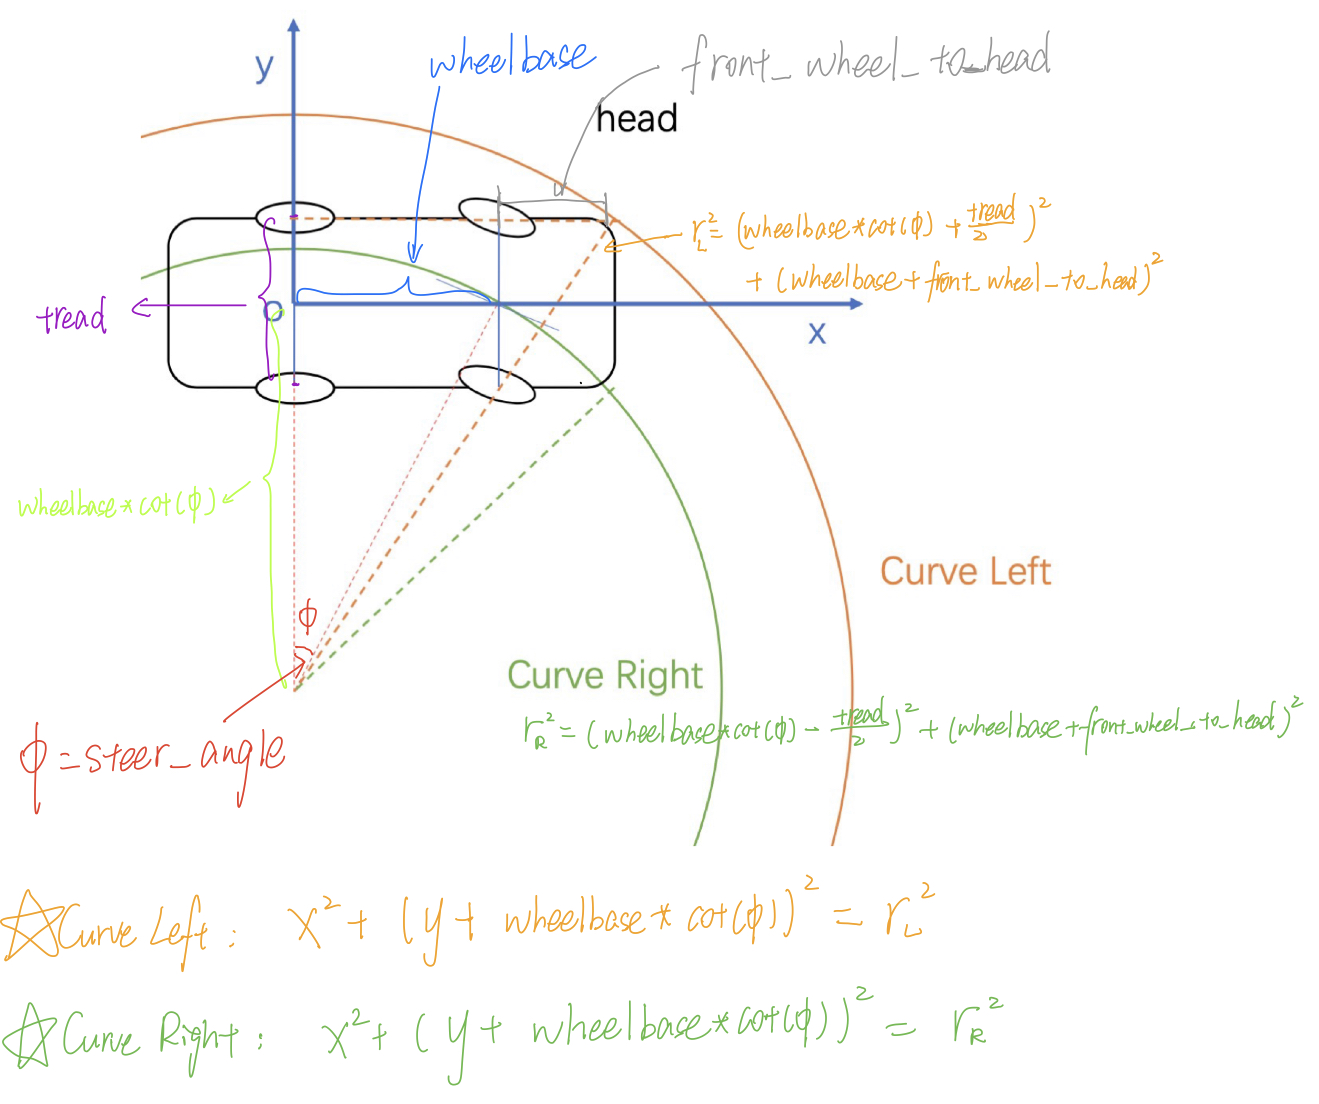 y
wheelbase
front_wheel_to_head
head
r_L^2 = (wheelbase*cot(ϕ) + tread/2)^2
+ (wheelbase+front_wheel_to_head)^2
tread
O
x
wheelbase*cot(ϕ)
ϕ
Curve Left
Curve Right
r_R^2 = (wheelbase*cot(ϕ) - tread/2)^2 + (wheelbase+front_wheel_to_head)^2
ϕ=steer_angle
☆Curve Left: x^2 + (y + wheelbase* cot(ϕ))^2 = r_L^2
☆Curve Right: x^2 + (y + wheelbase*cot(ϕ))^2 = r_R^2